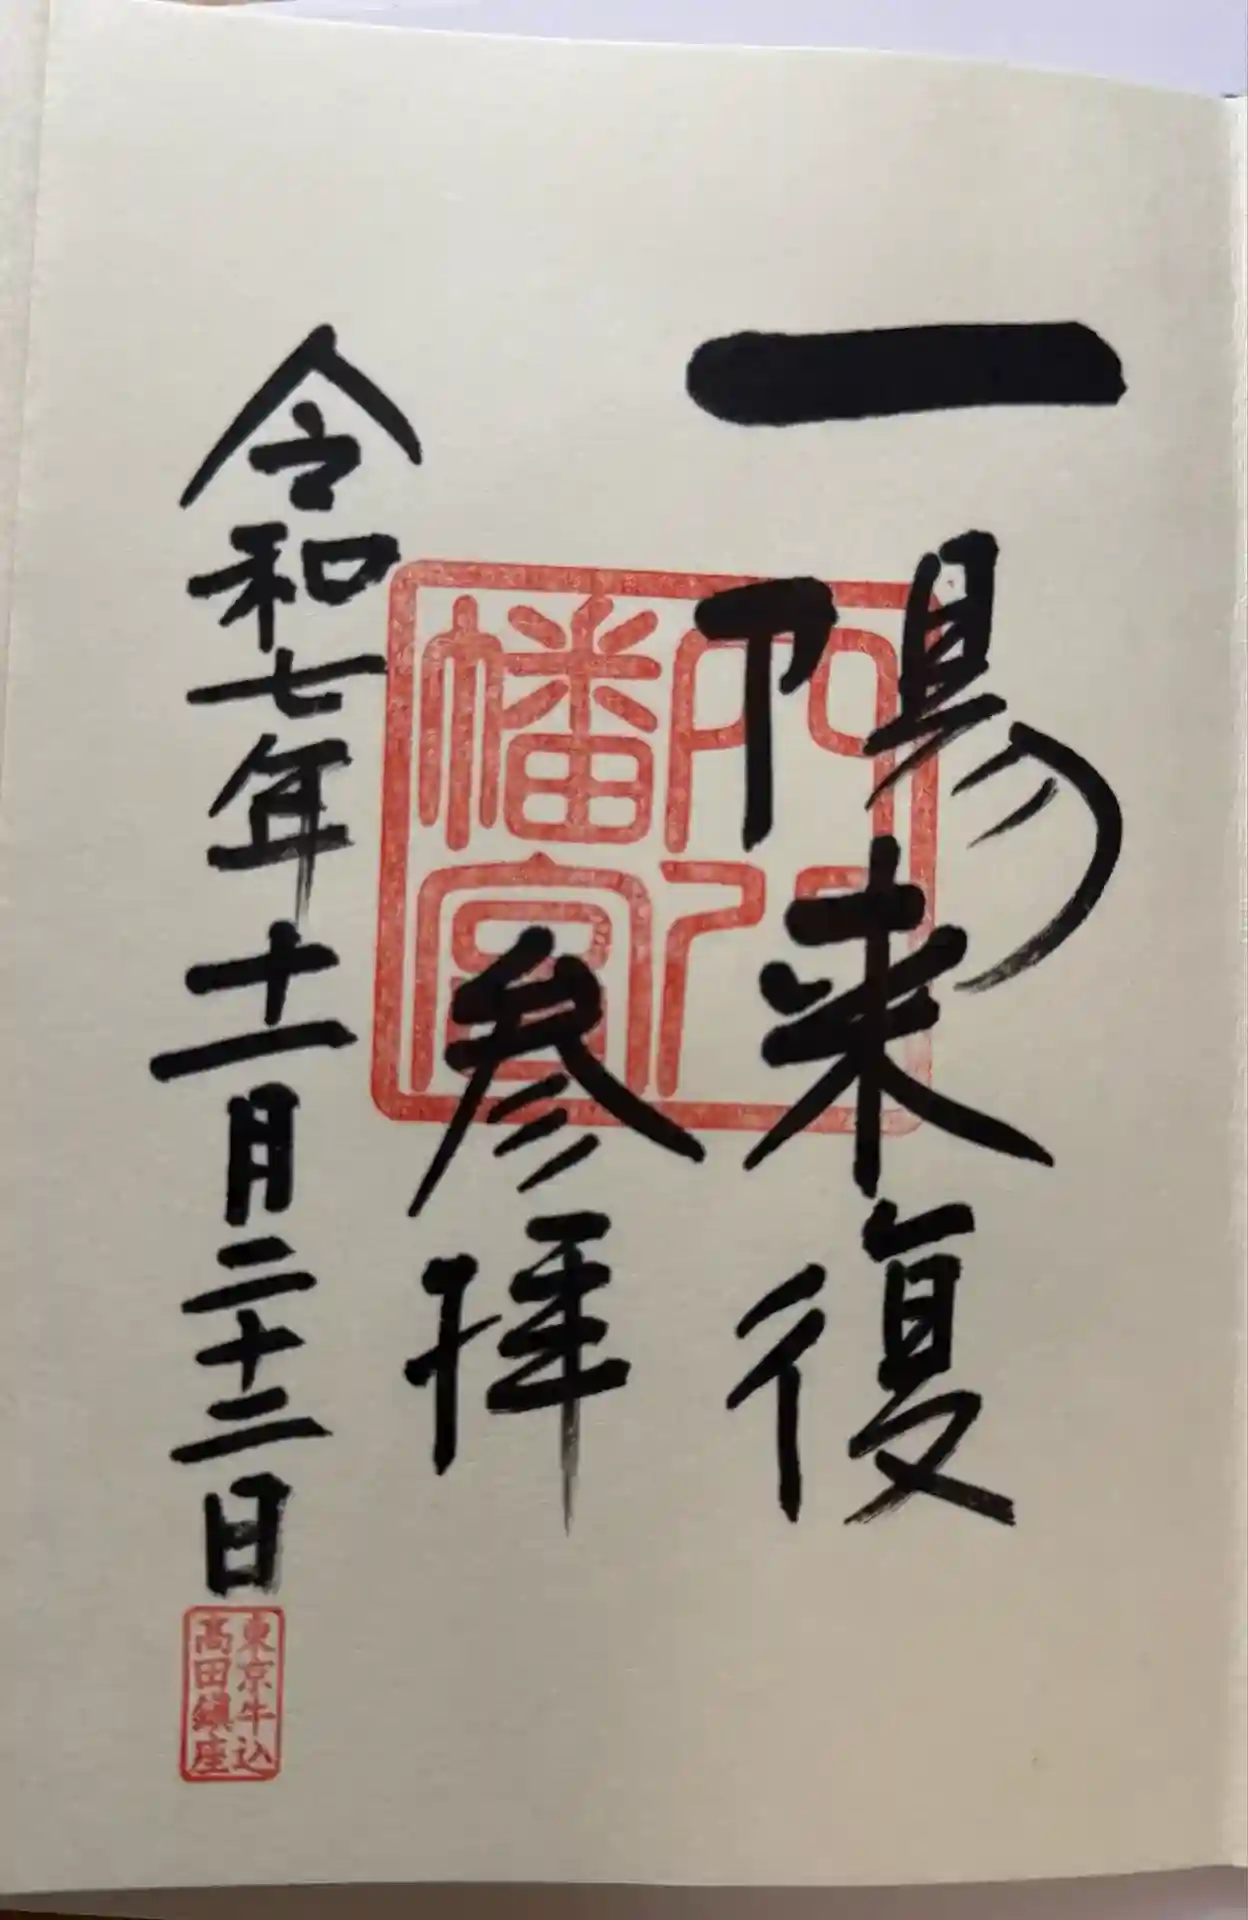 一陽来復
穴八幡宮
参拝
令和七年十一月二十二日
東京牛込
高田鎮座